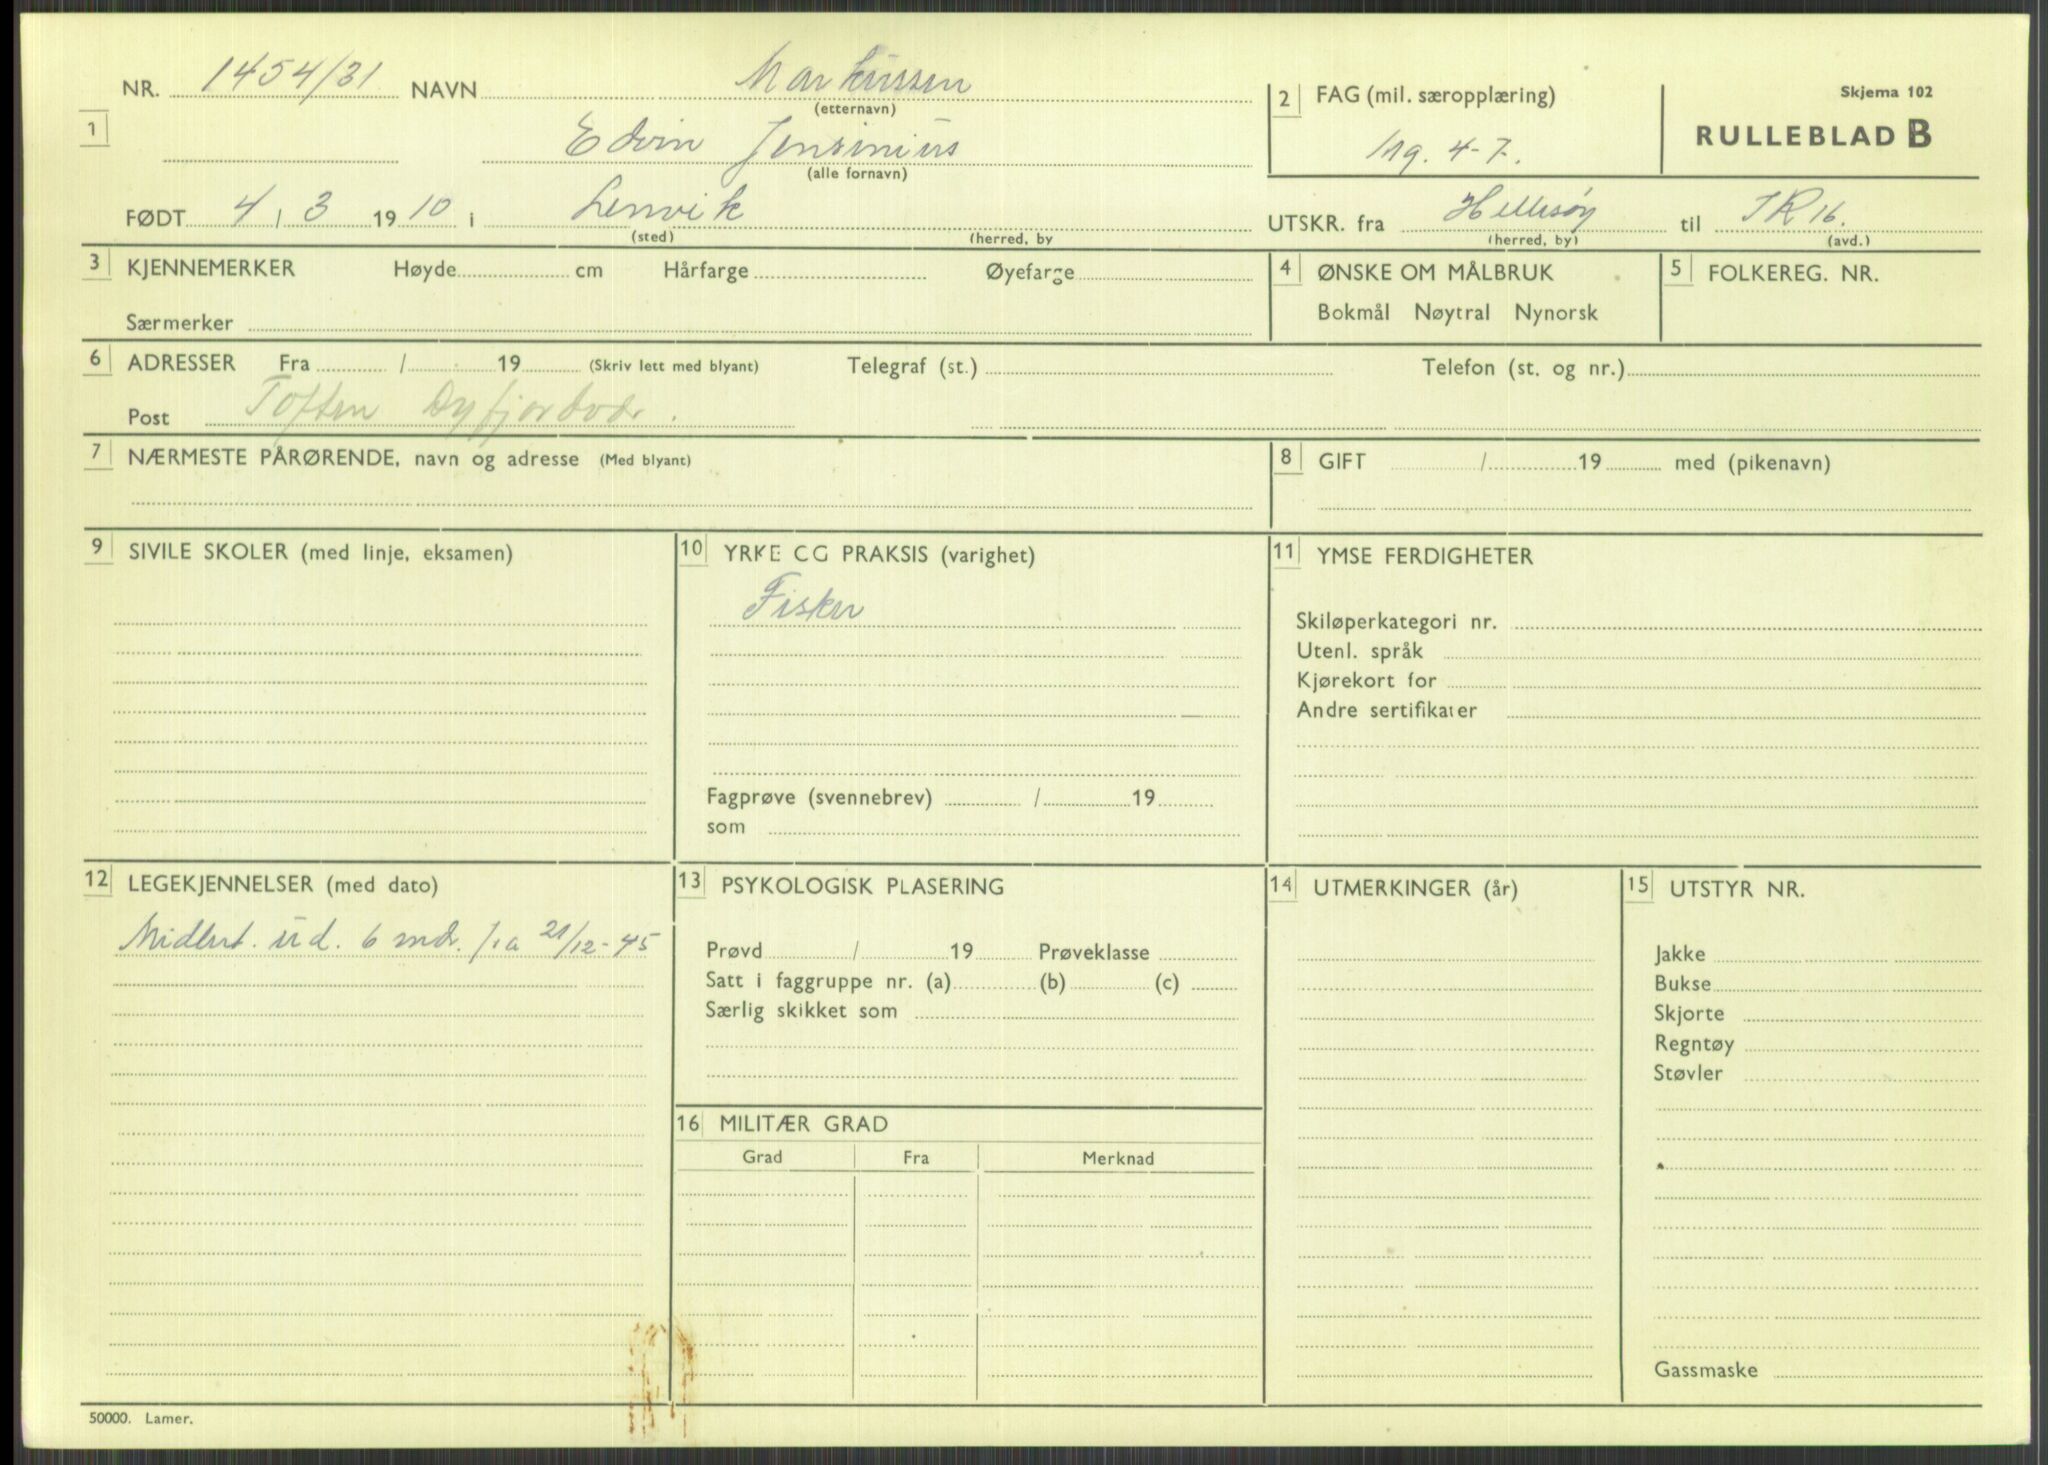 NR. 1454/31 NAVN Markussen
(etternavn)
1 Edvin Jensinius
(alle fornavn)
FØDT 4 / 3 1910 i Lenvik
(sted) (herred, by
2 FAG (mil. særopplæring)
Ing. 4-7.
Skjema 102
RULLEBLAD B
UTSKR. fra Hillesøy til IR 16.
(herred, by) (avd.)
3 KJENNEMERKER Høyde cm Hårfarge Øyefarge
Særmerker
4 ØNSKE OM MÅLBRUK
Bokmål Nøytral Nynorsk
5 FOLKEREG. NR.
6 ADRESSER Fra / 19 (Skriv lett med blyant) Telegraf (st.) Telefon (st. og nr.)
Post Toften Øyfjordvær.
7 NÆRMESTE PÅRØRENDE, navn og adresse (Med blyant)
8 GIFT / 19 med (pikenavn)
9 SIVILE SKOLER (med linje, eksamen)
10 YRKE OG PRAKSIS (varighet)
Fisker
Fagprøve (svennebrev) / 19
som
11 YMSE FERDIGHETER
Skiløperkategori nr.
Utenl. språk
Kjørekort for
Andre sertifikater
12 LEGEKJENNELSER (med dato)
Midlert. ud. 6 mdr. fra 21/12-45
13 PSYKOLOGISK PLASERING
Prøvd / 19 Prøveklasse
Satt i faggruppe nr. (a) (b) (c)
Særlig skikket som
14 UTMERKINGER (år)
15 UTSTYR NR.
Jakke
Bukse
Skjorte
Regntøy
Støvler
Gassmaske
16 MILITÆR GRAD
Grad Fra Merknad
50000. Lamer.